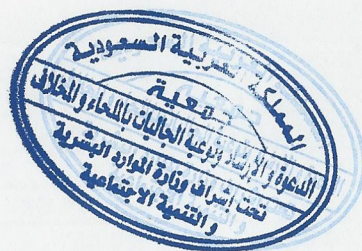 المملكة العربية السعودية
جمعية
الدعوة والإرشاد وتوعية الجاليات باللحاء والخلاف
تحت إشراف وزارة الموارد البشرية
و التنمية الاجتماعية